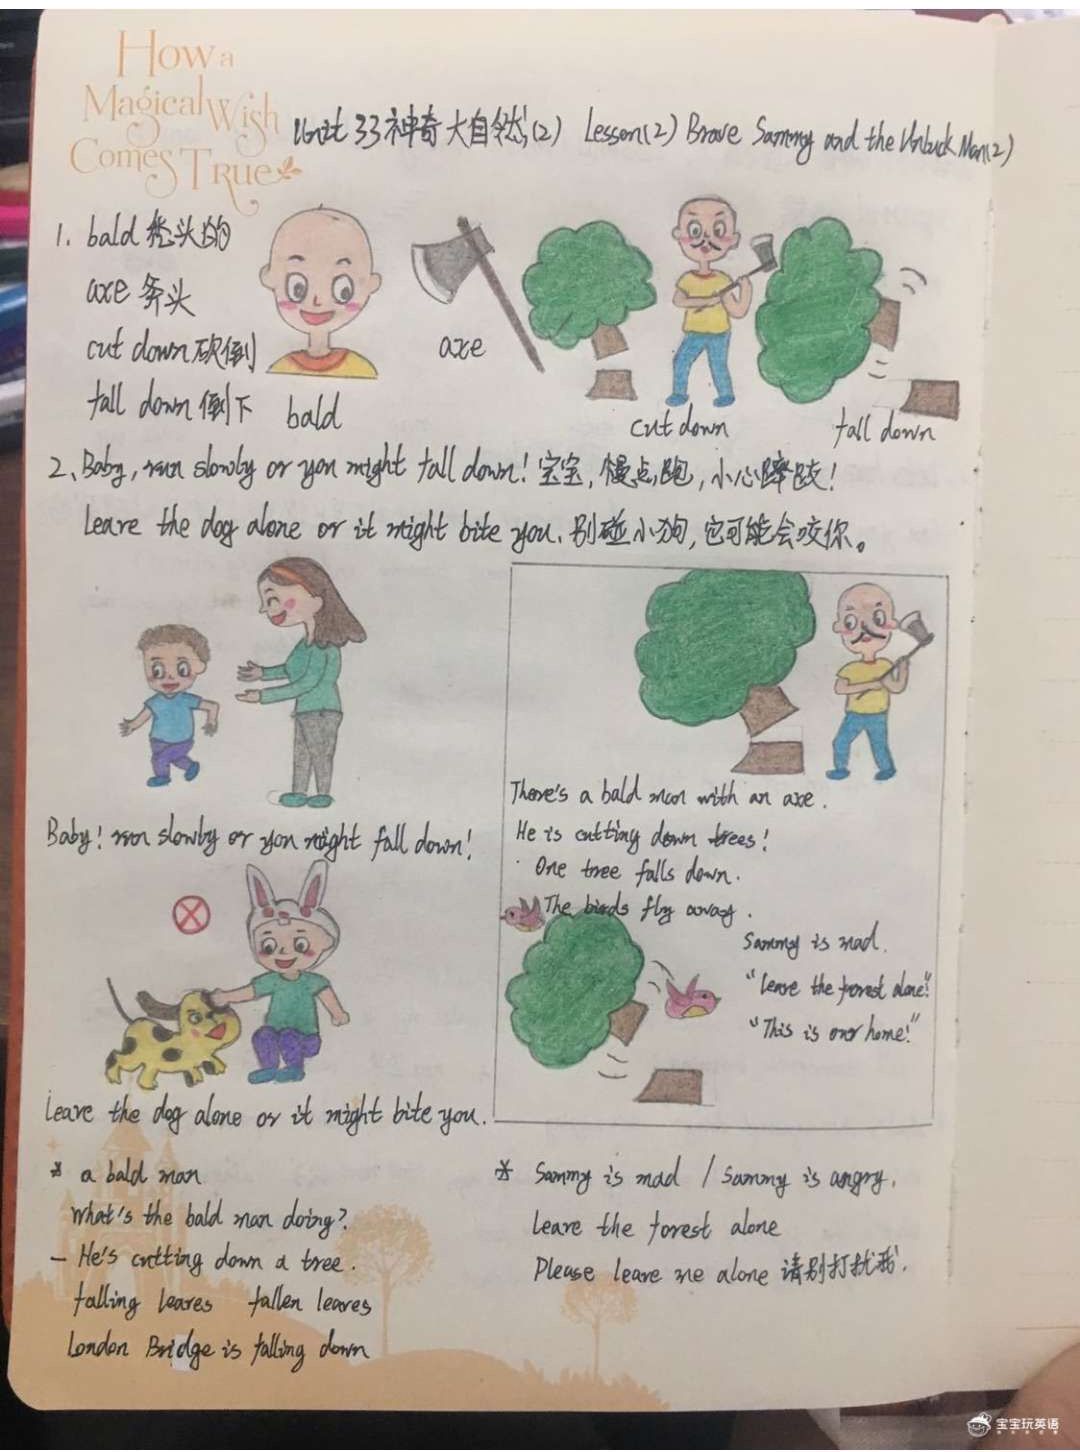 How a
Magical Wish
Comes True
Unit 33 神奇大自然(2) Lesson(2) Brave Sammy and the Unluck Man(2)
1. bald 秃头的
axe 斧头
cut down 砍倒
fall down 倒下
bald
axe
cut down
fall down
2、Baby, run slowly or you might fall down! 宝宝,慢点跑,小心摔跤!
Leave the dog alone or it might bite you. 别碰小狗,它可能会咬你。
Baby! run slowly or you might fall down!
There's a bald man with an axe.
He is cutting down trees!
One tree falls down.
The birds fly away.
Sammy is mad.
"Leave the forest alone!"
"This is our home!"
Leave the dog alone or it might bite you.
* a bald man
What's the bald man doing?
- He's cutting down a tree.
falling leaves fallen leaves
London Bridge is falling down
* Sammy is mad / Sammy is angry.
Leave the forest alone
Please leave me alone 请别打扰我.
宝宝玩英语